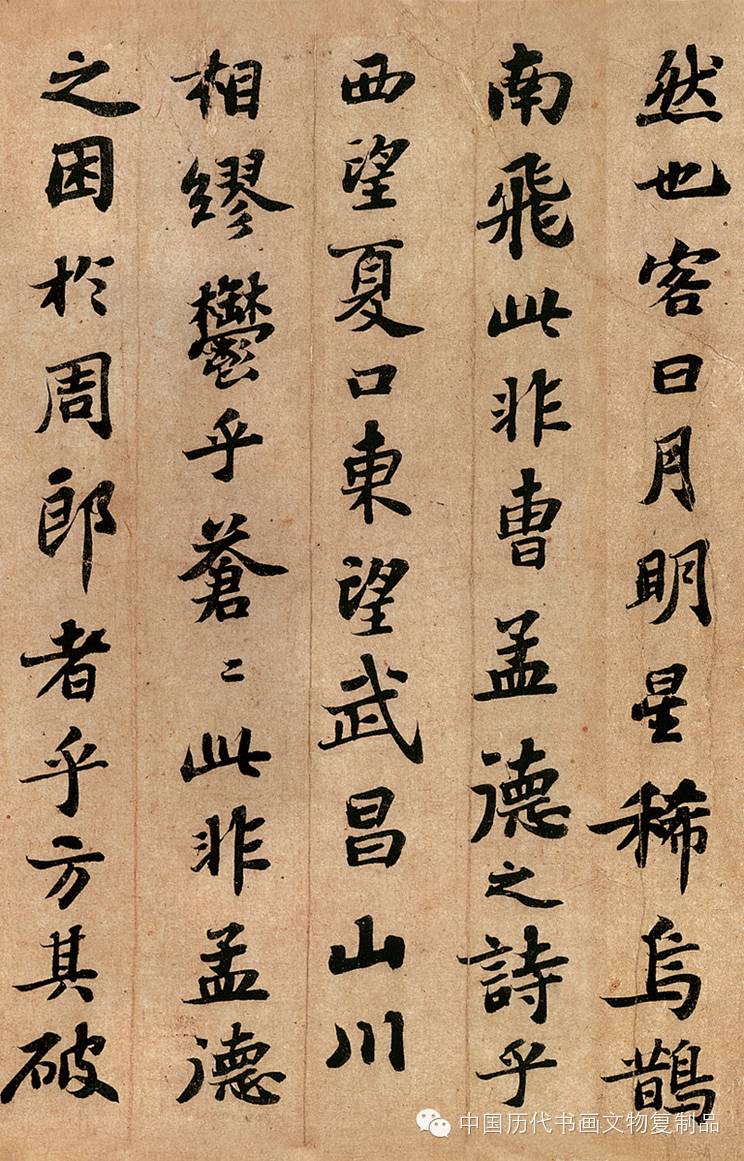 然也客曰月明星稀烏鵲
南飛此非曹孟德之詩乎
西望夏口東望武昌山川
相繆鬱乎蒼〻此非孟德
之困於周郎者乎方其破
中国历代书画文物复制品